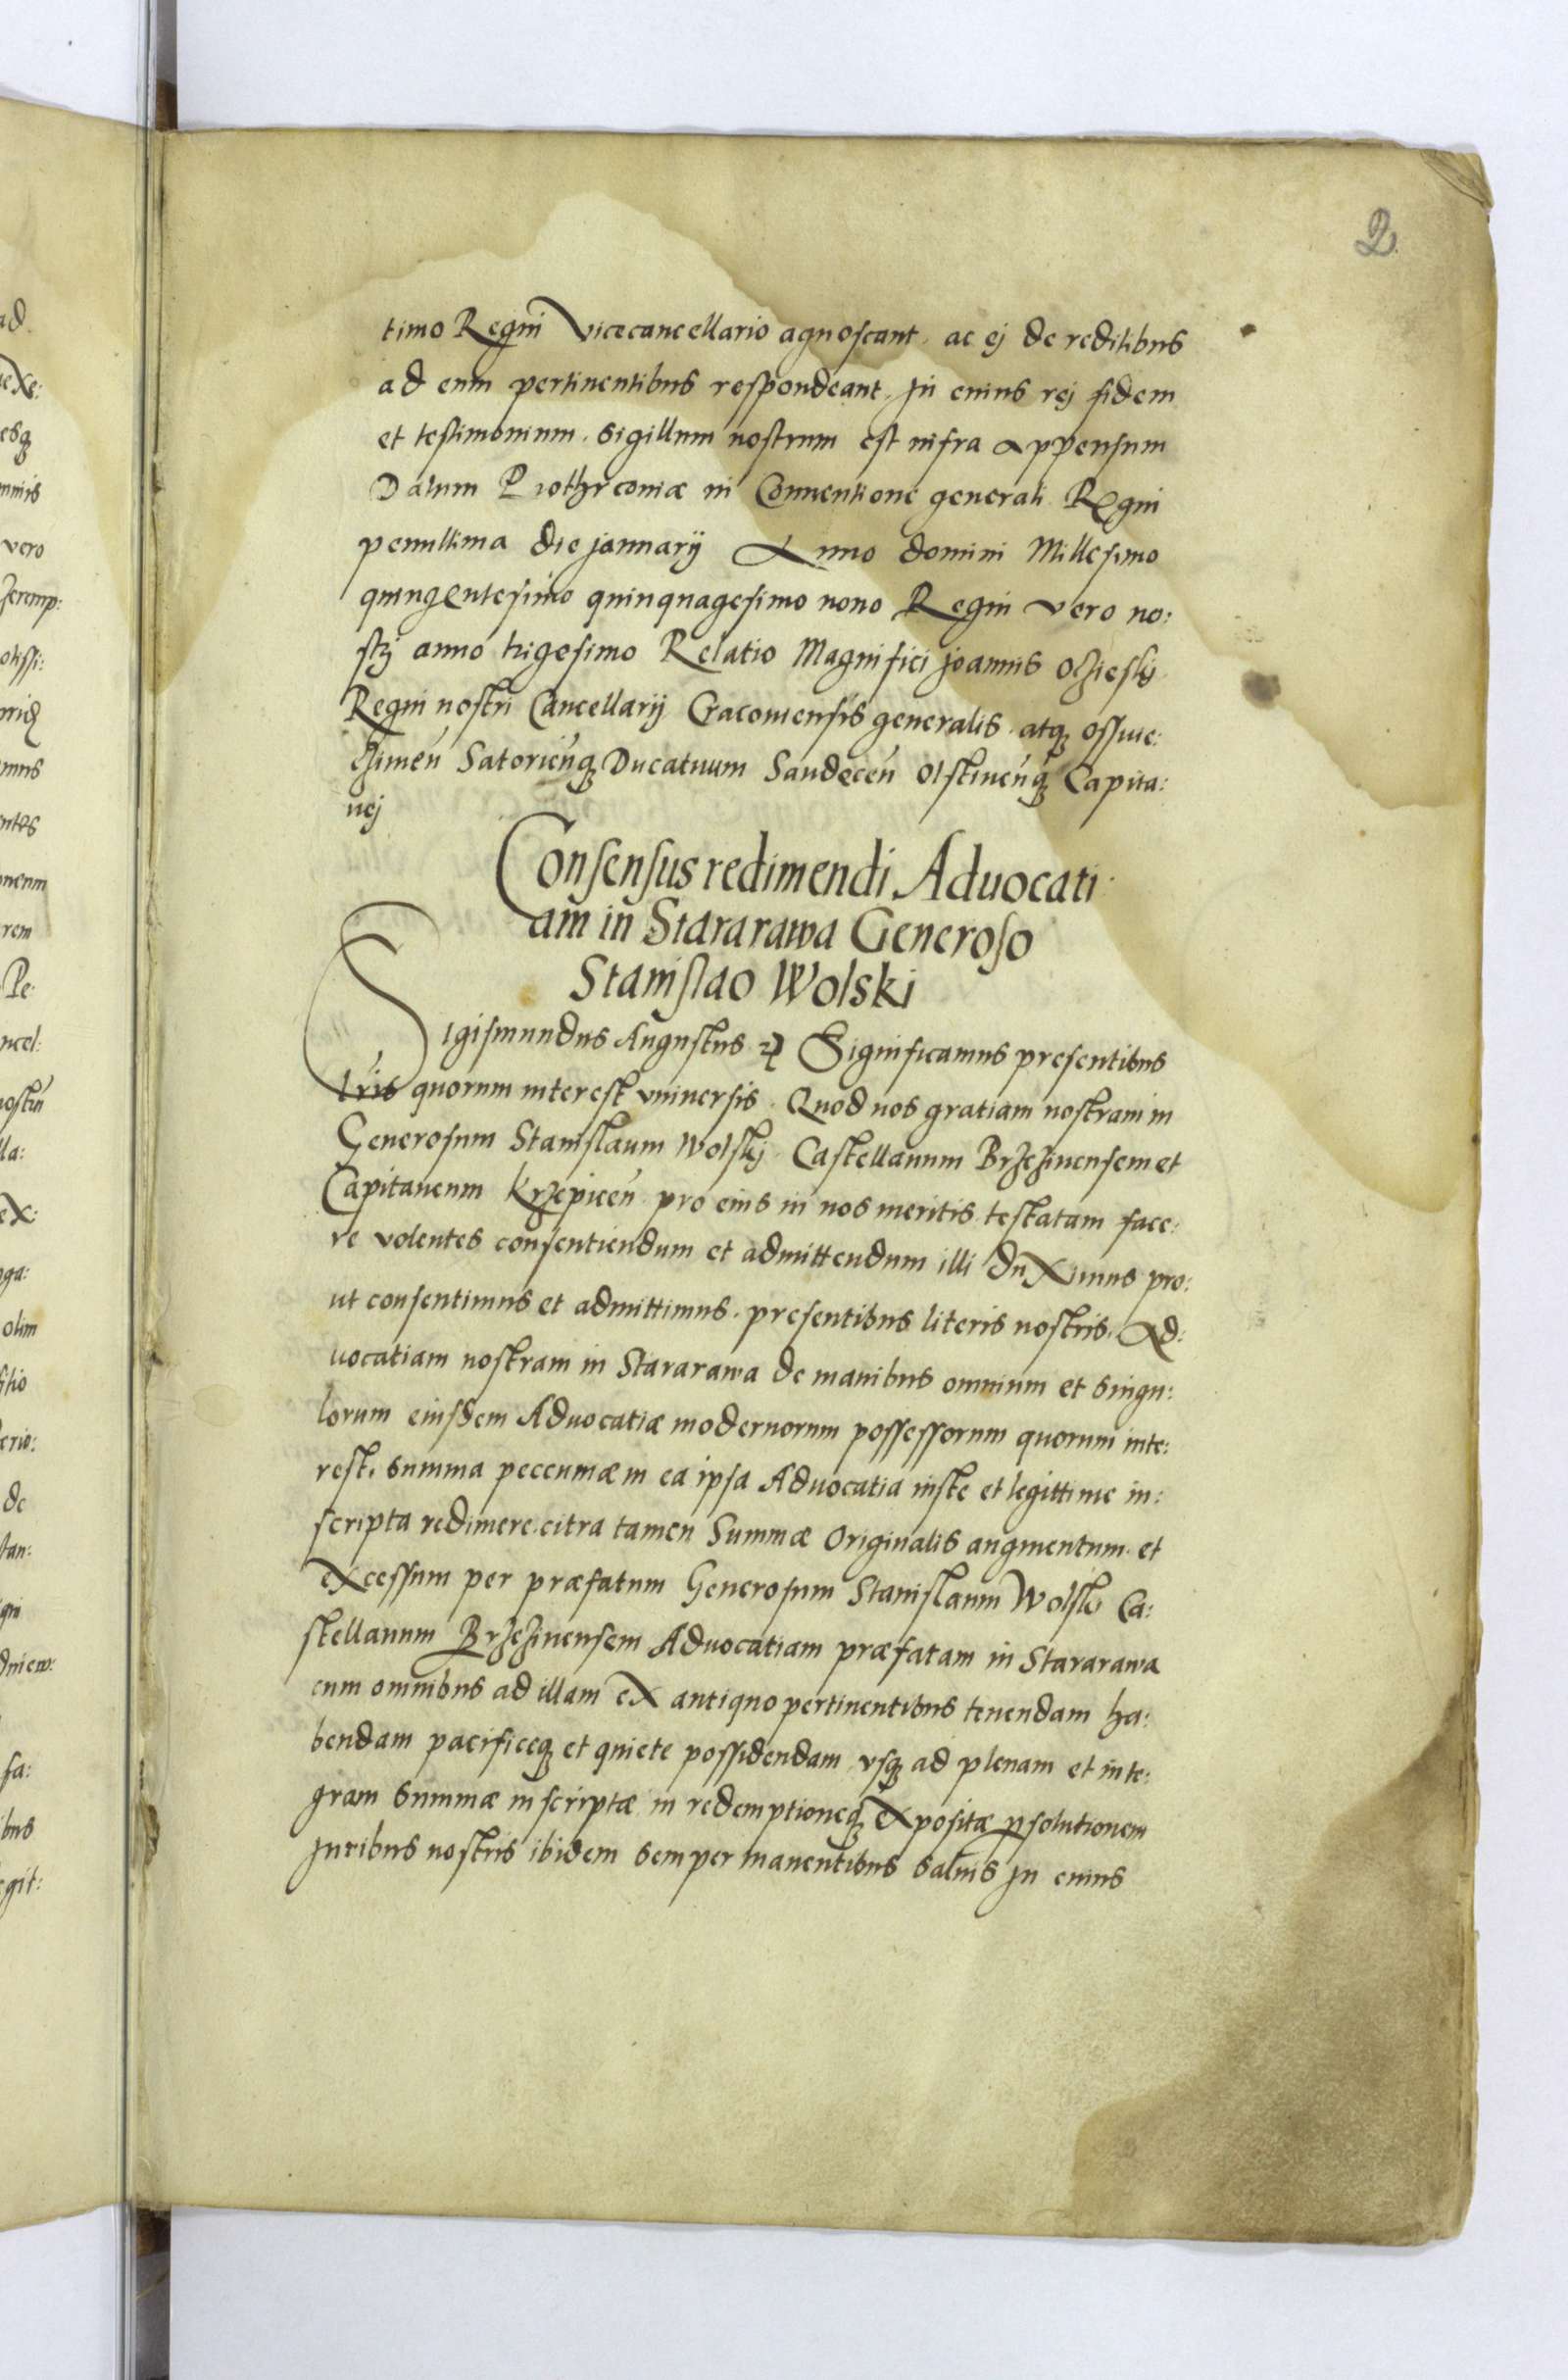 2.
timo Regni Vicecancellario agnoscant, ac ej de reditibus
ad eum pertinentibus respondeant, In cuius rej fidem
et testimonium, Sigillum nostrum est infra Appensum
Datum Piothrcouiæ in Conuentione generali Regni
penultima die januarij Anno domini Millesimo
quingentesimo quinquagesimo nono Regni vero no:
strj anno trigesimo Relatio Magnifici joannis Oczieskj
Regni nostri Cancellarij Cracouiensis generalis, atq; Ossuie:
czimeñ Satorieñq; Ducatuum Sandeceñ Olstineñq; Capita:
nej
Consensus redimendi Aduocati
am in Stararawa Generoso
Stanislao Wolski
Sigismundus Augustus Significamus presentibus
lris quorum interest vniuersis. Quod nos gratiam nostram in
Generosum Stanislaum Wolskj Castellanum Brzezinensem et
Capitaneum Krzepiceñ pro eius in nos meritis testatam face:
re volentes consentiendum et admittendum illi duximus pro:
ut consentimus et admittimus, presentibus literis nostris, Ad:
uocatiam nostram in Stararawa de manibus omnium et singu:
lorum eiusdem Aduocatiæ modernorum possessorum quorum inte:
rest, summa peccuniæ in ea ipsa Aduocatia iuste et legittime in:
scripta redimere, citra tamen Summæ Originalis augmentum et
excessum per præfatum Generosum Stanislaum Wolskj Ca:
stellanum Brzezinensem Aduocatiam præfatam in Stararawa
cum omnibus ad illam ex antiquo pertinentibus tenendam ha:
bendam pacificeq; et quiete possidendam vsq; ad plenam et inte:
gram Summæ inscriptæ in redemptioneq; expositæ psolutionem
Juribus nostris ibidem semper manentibus saluis In cuius